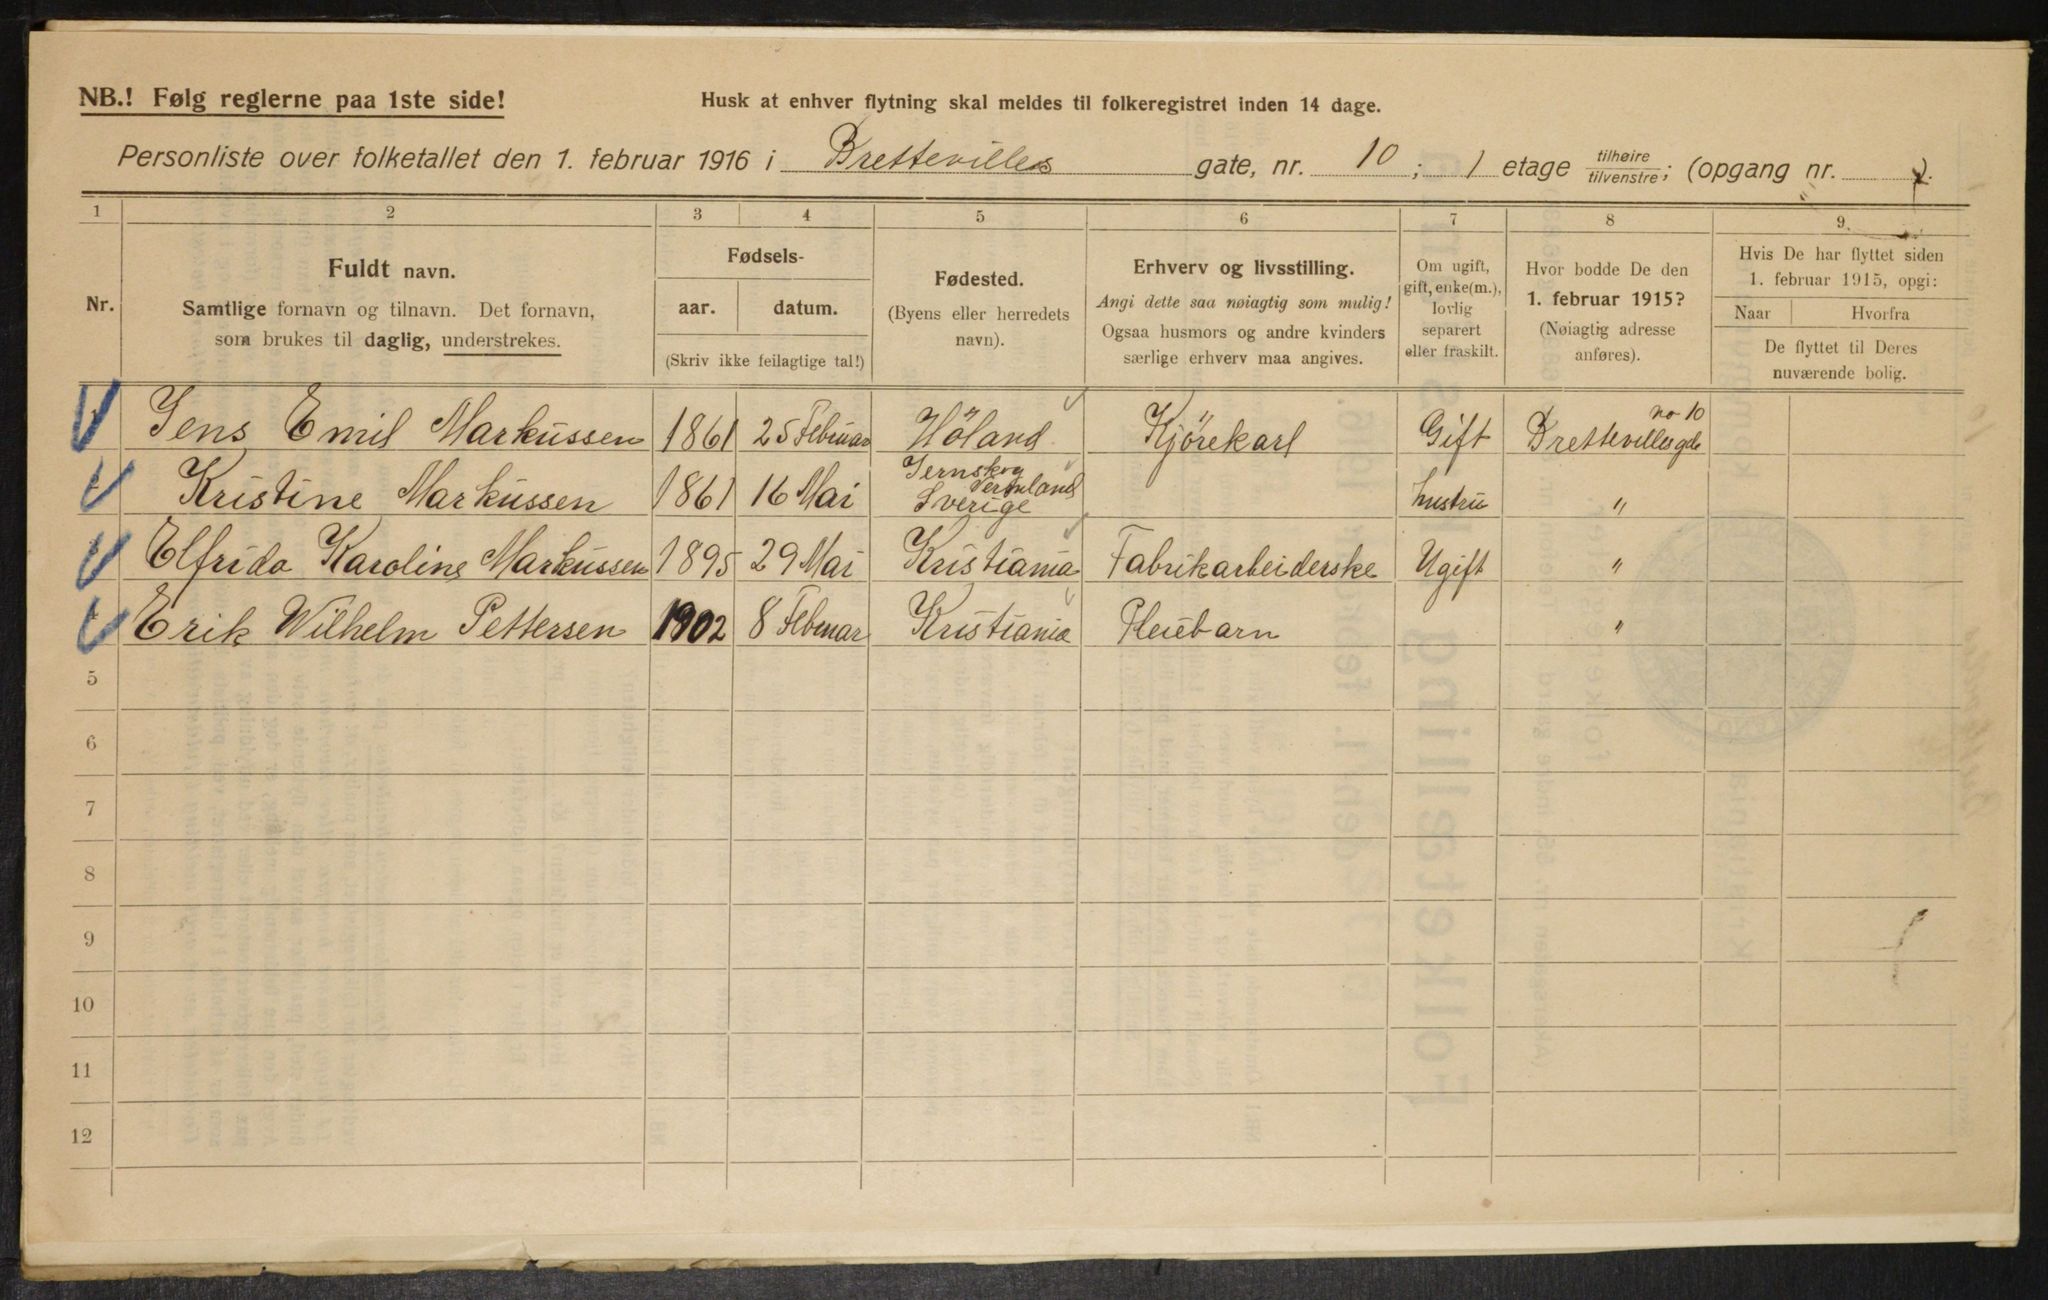 NB.! Følg reglerne paa 1ste side!
Husk at enhver flytning skal meldes til folkeregistret inden 14 dage.
Personliste over folketallet den 1. februar 1916 i Brettevilles gate, nr. 10; 1 etage tilhøire tilvenstre; (opgang nr. ).
1 2 3 4 5 6 7 8 9.
Nr.
Fuldt navn.
Samtlige fornavn og tilnavn. Det fornavn,
som brukes til daglig, understrekes.
Fødsels-
aar. datum.
(Skriv ikke feilagtige tal!)
Fødested.
(Byens eller herredets
navn).
Erhverv og livsstilling.
Angi dette saa nøiagtig som mulig!
Ogsaa husmors og andre kvinders
særlige erhverv maa angives.
Om ugift,
gift, enke(m.),
lovlig
separert
eller fraskilt.
Hvor bodde De den
1. februar 1915?
(Nøiagtig adresse
anføres).
Hvis De har flyttet siden
1. februar 1915, opgi:
Naar Hvorfra
De flyttet til Deres
nuværende bolig.
Jens Emil Markussen 1861 25 Februar Höland Kjörekarl Gift Brettevillesgde no 10
Kristine Markussen 1861 16 Mai Jernskog Vermland Sverige hustru "
Elfrida Karoline Markussen 1895 29 Mai Kristiania Fabrikarbeiderske Ugift "
Erik Wilhelm Pettersen 1902 8 Februar Kristiania Pleiebarn "
5
6
7
8
9
10
11
12